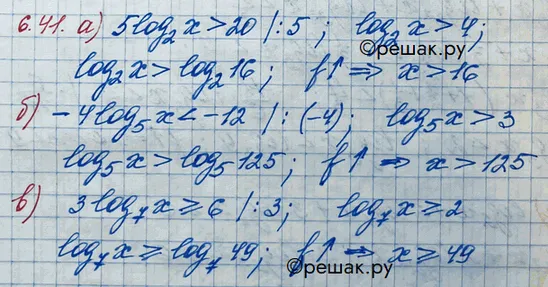 6.41. а) 5log₂x > 20 |:5 ; log₂x > 4;
©решак.ру
log₂x > log₂16 ; f↑ ⇒ x > 16
б) -4log₅x < -12 |:(-4); log₅x > 3
log₅x > log₅125 ; f↑ ⇒ x > 125
в) 3log₇x ≥ 6 |:3; log₇x ≥ 2
log₇x ≥ log₇49; f↑ ⇒ x ≥ 49
©решак.ру